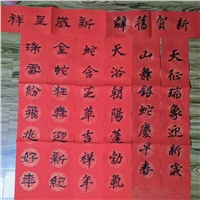 新歲呈祥
天征瑞象迎新歲
山舞銀蛇慶早春
天浴朝陽蓬勃氣
蛇含芝草吉祥年
金蛇狂舞迎新紀
雪紛飛兆好事